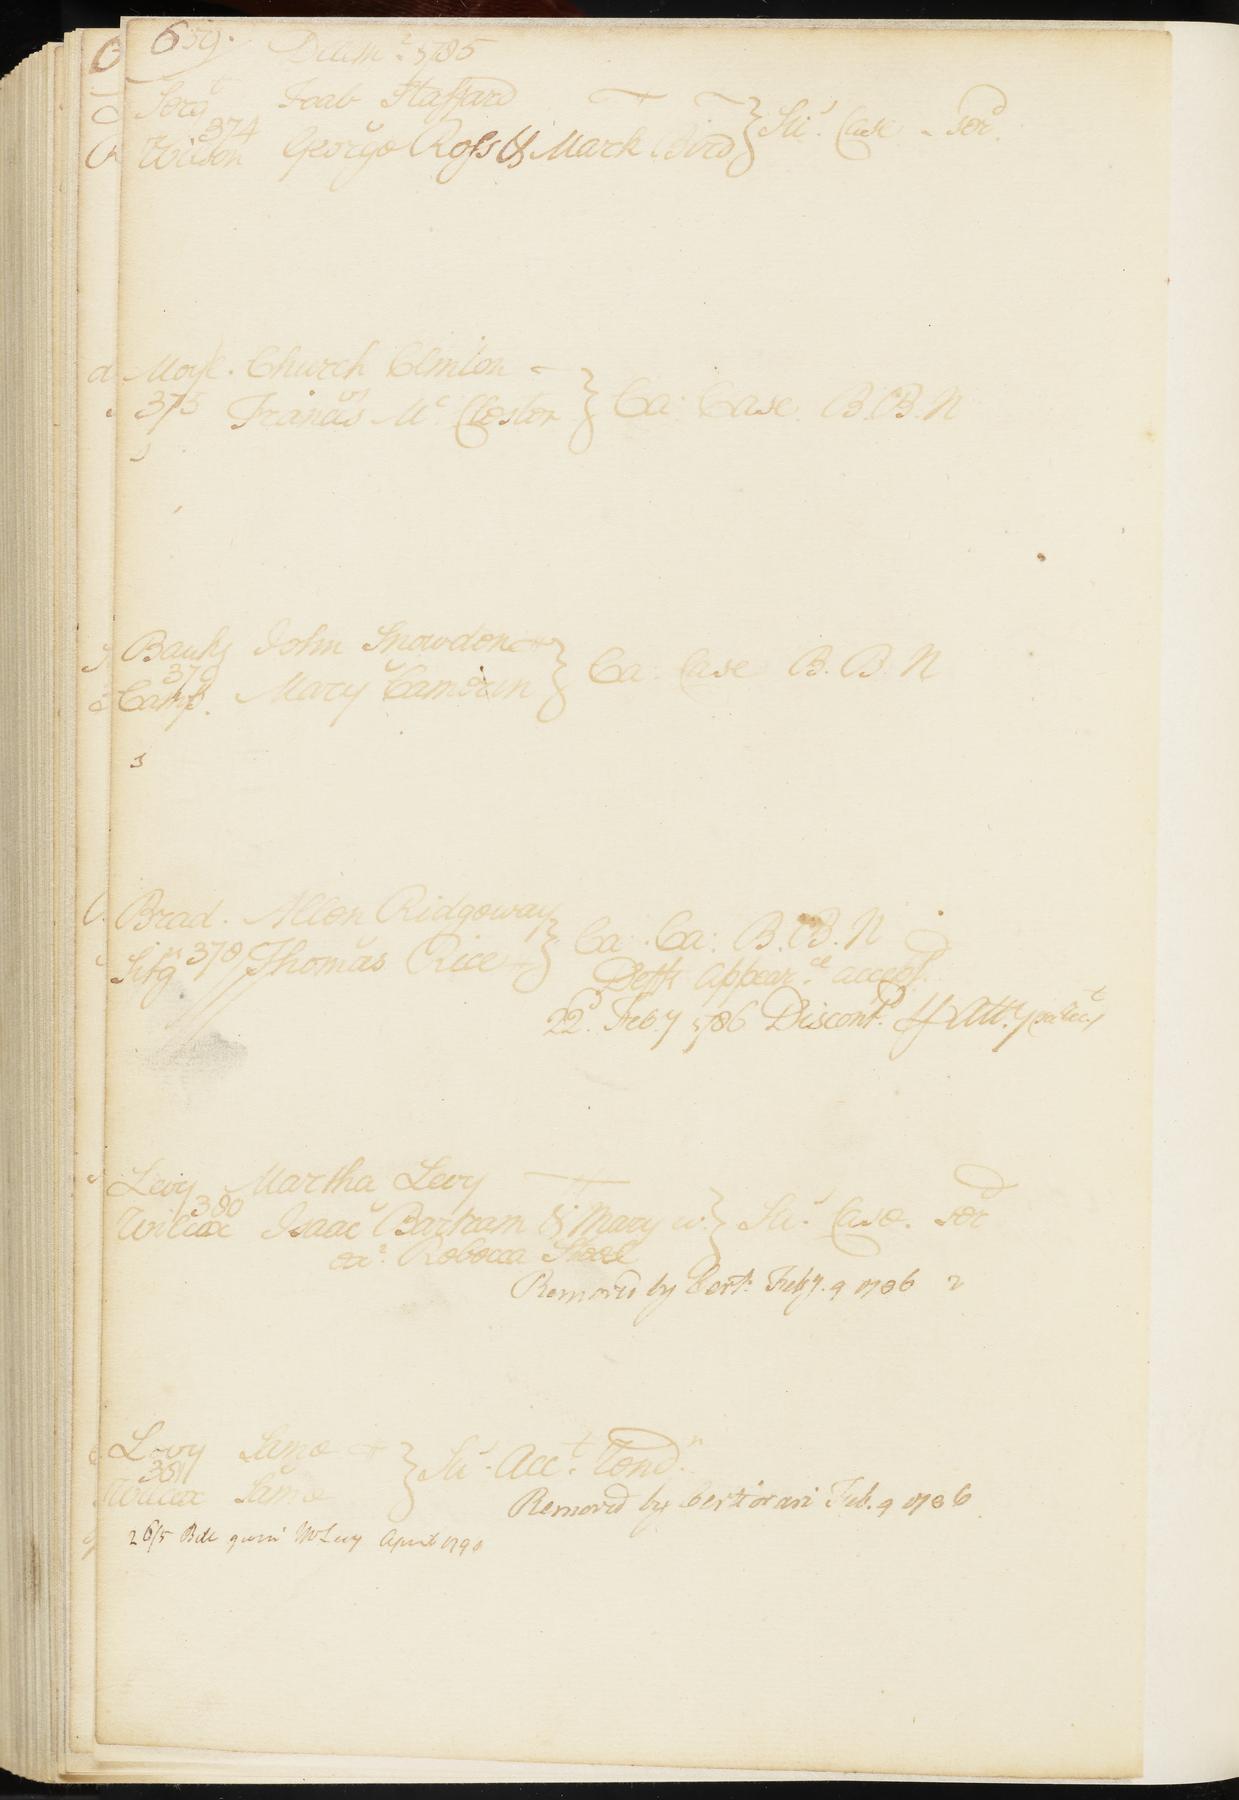 659. Decemr. 1785
Sergt Joab Stafford
374
Wilson George Ross & Mark Bird } Su. Case - serd.
Moyl. Church Clinton
375 Francis Mc. Clester } Ca. Case. B. B. N
s
Banks John Snowden
Camp. Mary Camorun } Ca. Case B. B. N
s
Brad. Allen Ridgeway
378 Thomas Rice } Ca. Ca: B. B. N
Defts appearce. accept.
22d. Feby 1786 Discontd.
Levy Martha Levy
380
Wilcox Isaac Bartram & Mary } Su. Case. serd
exr. Rebecca Steel
Removed by Cert. Feby. 9 1786
Levy Same
381
Wilcox Same } Su. Acct. Cond.
Removed by Certiorari Feb. 9 1786
26/5 Bill given Mr Levy April 1790